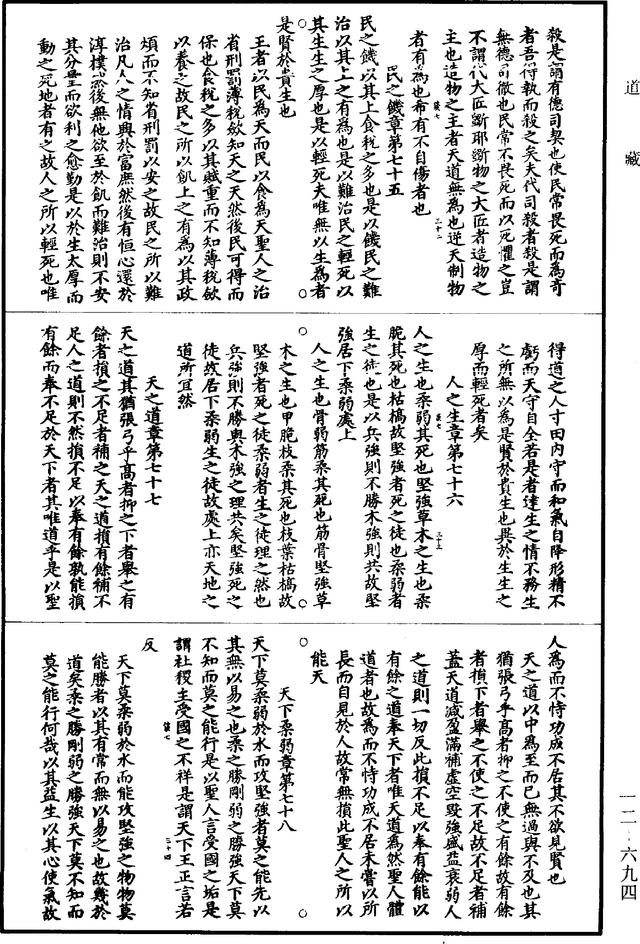 道藏
殺是謂有德司契也使民常畏死而為奇
者吾得執而殺之矣夫代司殺者殺是謂
無德司徹也民常不畏死而以死懼之豈
不謂代大匠斲耶斲物之大匠者造物之
主也造物之主者天道無為也逆天制物
者有為也希有不自傷者也
民之饑章第七十五
民之饑以其上食稅之多也是以饑民之難
治以其上之有為也是以難治民之輕死以
其生生之厚也是以輕死夫唯無以生為者
是賢於貴生也
王者以民為天而民以食為天聖人之治
省刑罰薄稅斂知天之天然後民可得而
保也食稅之多以其賦重而不知薄稅斂
以養之故民之所以飢上之有為以其政
煩而不知省刑罰以安之故民之所以難
治凡人之情興於富庶然後有恒心還於
淳樸然後無他欲至於飢而難治則不安
其分量而欲利之愈勤是以於生太厚而
動之死地者有之故人之所以輕死也唯
得道之人寸田內守而和氣自降形精不
虧而天守自全若是者達生之情不務生
之所無以為是賢於貴生也異於生生之
厚而輕死者矣
人之生章第七十六
人之生也柔弱其死也堅強草木之生也柔
脆其死也枯槁故堅強者死之徒也柔弱者
生之徒也是以兵強則不勝木強則共故堅
強居下柔弱處上
人之生也骨弱筋柔其死也筋骨堅強草
木之生也甲脆枝柔其死也枝葉枯槁故
堅強者死之徒柔弱者生之徒理之然也
兵強則不勝輿木強之理共矣堅強死之
徒故居下柔弱生之徒故處上亦天地之
道所宜然
天之道章第七十七
天之道其猶張弓乎高者抑之下者舉之有
餘者損之不足者補之天之道損有餘補不
足人之道則不然損不足以奉有餘孰能損
有餘而奉不足於天下者其唯道乎是以聖
人為而不恃功成不居其不欲見賢也
天之道以中為至而已無過與不及也其
猶張弓乎高者抑之不使之有餘故有餘
者損下者舉之不使之不足故不足者補
蓋天道減盈滿補虛空毀強盛益衰弱人
之道則一切反此損不足以奉有餘能以
有餘之道奉天下者唯天道為然聖人體
道者也故為而不恃功成不居未嘗以所
長而自見於人故常無損此聖人之所以
能天
天下柔弱章第七十八
天下莫柔弱於水而攻堅強者莫之能先以
其無以易之也柔之勝剛弱之勝強天下莫
不知而莫之能行是以聖人言受國之垢是
謂社稷主受國之不祥是謂天下王正言若
反
天下莫柔弱於水而能攻堅強之物物莫
能勝者以其有常而無以易之也故幾於
道矣柔之勝剛弱之勝強天下莫不知而
莫之能行何哉以其益生以其心使氣故
一二·六九四